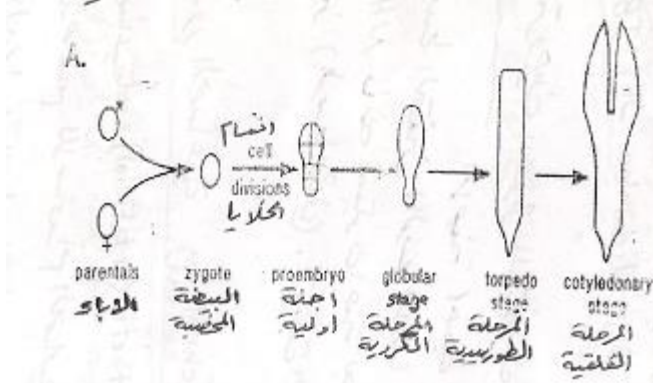 A.
انقسام
cell
divisions
الخلايا
parentals
الاباء
zygote
البيضة
المخصبة
proembryo
اجنة
أولية
globular
stage
المرحلة
الكروية
torpedo
stage
المرحلة
الطوربيدية
cotyledonary
stage
المرحلة
الفلقية